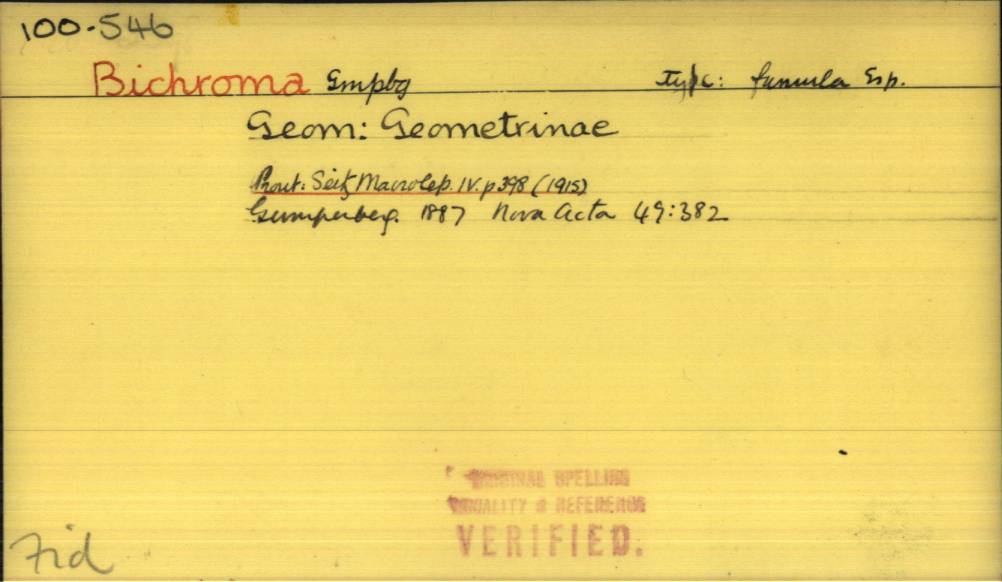 100-546
Bichroma Gmpbg type: famula Esp.
Geom: Geometrinae
Prout: Seitz Macrolep. IV. p 398 (1915)
Gumpenberg. 1887 Nova Acta 49:382
ORIGINAL SPELLING
& REFERENCE
VERIFIED.